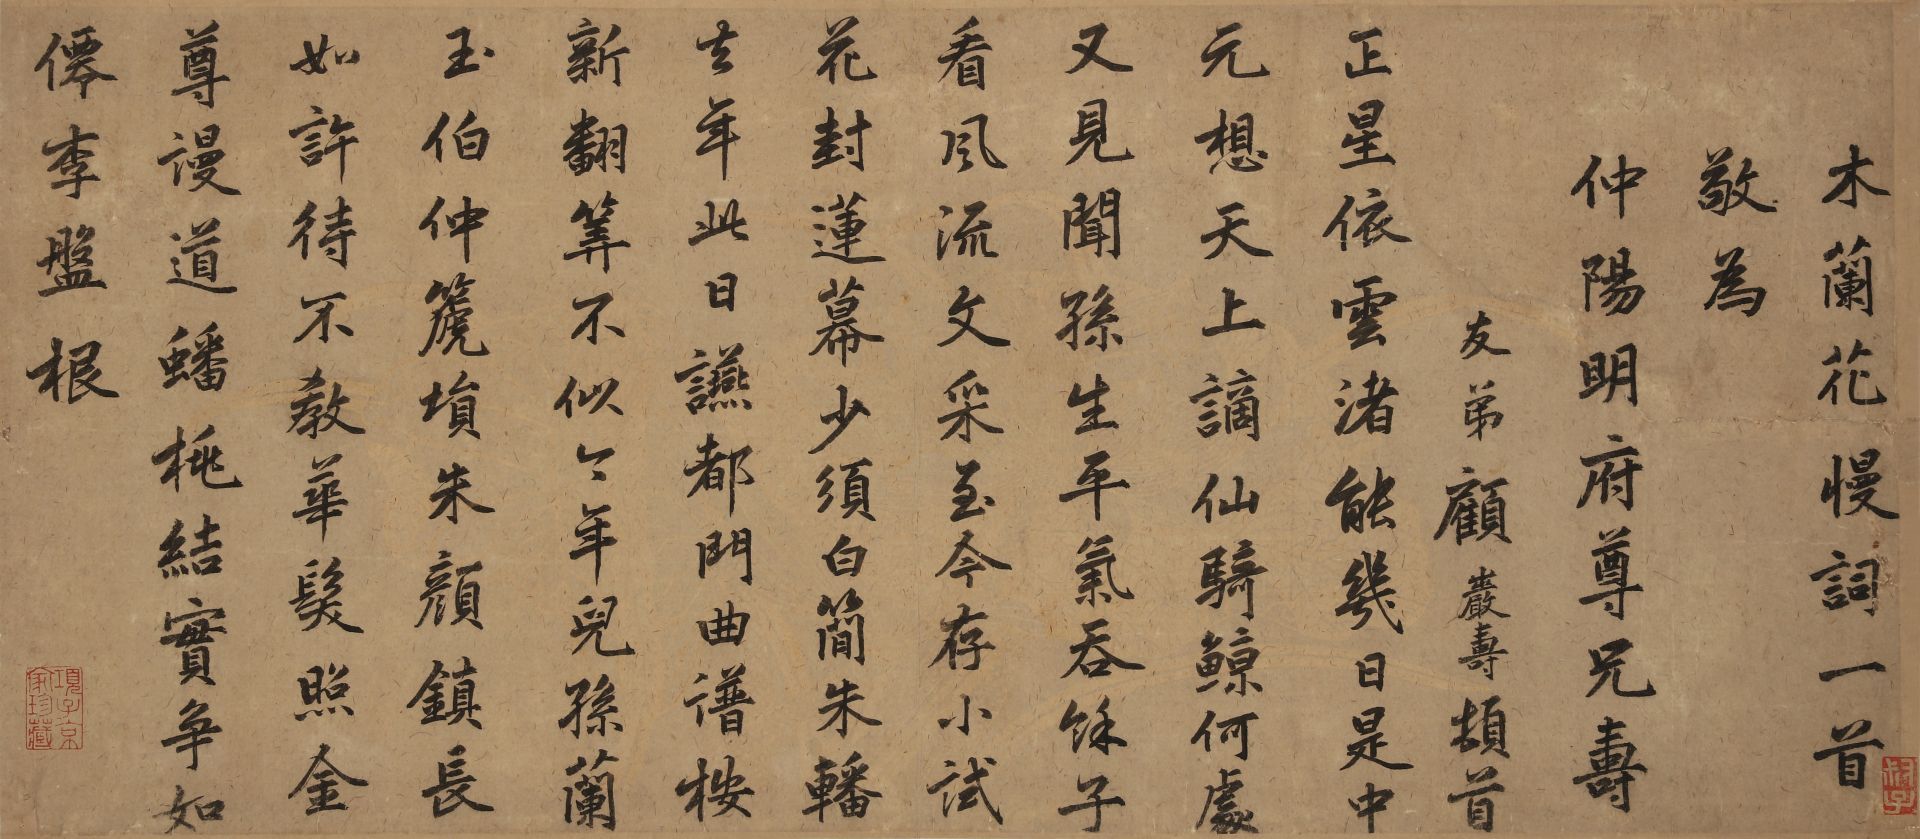 木蘭花慢詞一首
敬為
仲陽明府尊兄壽
友弟顧巖壽頓首
正星依雲渚能幾日是中
元想天上謫仙騎鯨何處
又見聞孫生平氣吞餘子
看風流文采至今存小試
花封蓮幕少須白簡朱轓
去年此日讌都門曲譜按
新翻算不似今年兒孫蘭
玉伯仲篪塤朱顏鎮長
如許待不教華髮照金
尊漫道蟠桃結實爭如
僊李盤根
項子京家珍藏